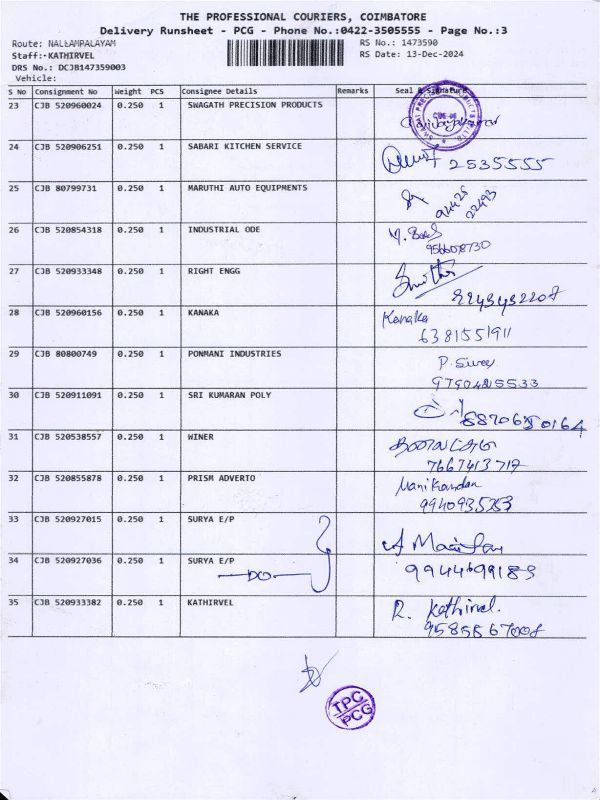 THE PROFESSIONAL COURIERS, COIMBATORE
Delivery Runsheet - PCG - Phone No.:0422-3505555 - Page No.:3
Route: NALLAMPALAYAM RS No.: 1473590
Staff:-KATHIRVEL RS Date: 13-Dec-2024
DRS No.: DCJB147359003
Vehicle:
S No Consignment No Weight PCS Consignee Details Remarks Seal & Signature
23 CJB 520960024 0.250 1 SWAGATH PRECISION PRODUCTS
24 CJB 520906251 0.250 1 SABARI KITCHEN SERVICE
2535555
25 CJB 80799731 0.250 1 MARUTHI AUTO EQUIPMENTS
26 CJB 520854318 0.250 1 INDUSTRIAL ODE
27 CJB 520933348 0.250 1 RIGHT ENGG
28 CJB 520960156 0.250 1 KANAKA Kanaka
6381551911
29 CJB 80800749 0.250 1 PONMANI INDUSTRIES
30 CJB 520911091 0.250 1 SRI KUMARAN POLY
31 CJB 520538557 0.250 1 WINER
7667413717
32 CJB 520855878 0.250 1 PRISM ADVERTO Manikandan
33 CJB 520927015 0.250 1 SURYA E/P
34 CJB 520927036 0.250 1 SURYA E/P
DO 9944699183
35 CJB 520933382 0.250 1 KATHIRVEL R. Kathirvel.
TPC
PCG